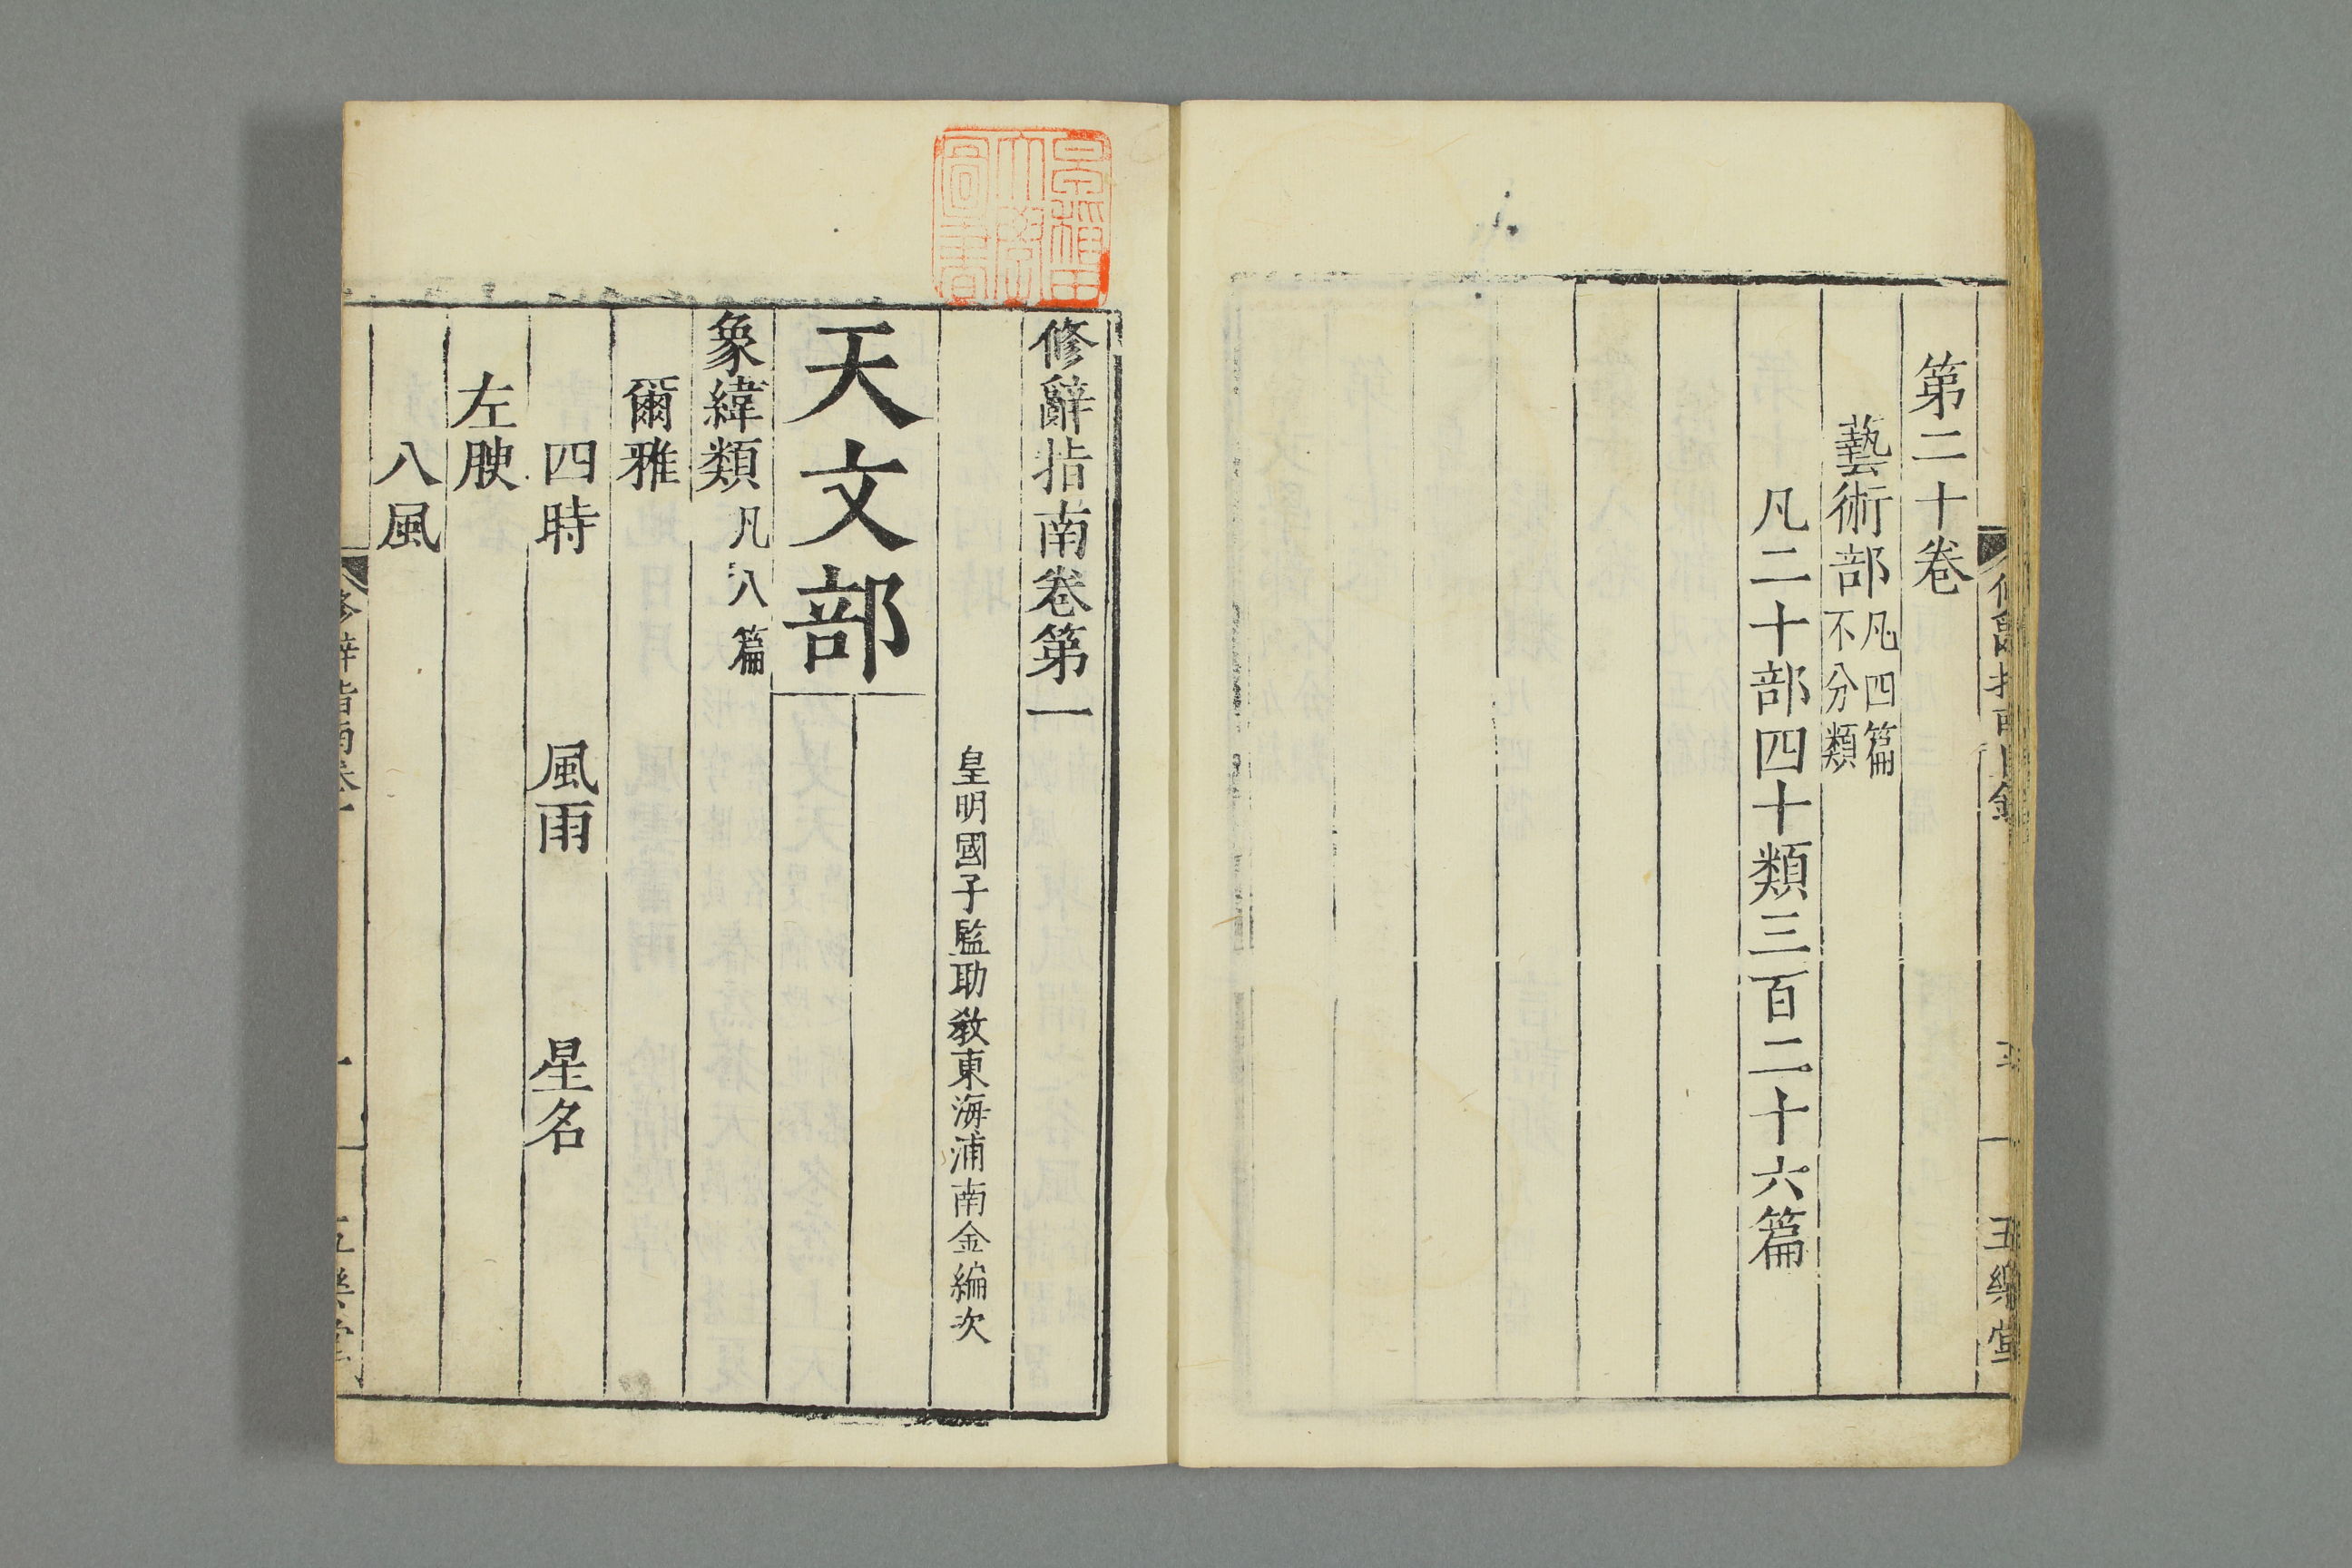 第二十卷
藝術部凡四篇
不分類
凡二十部四十類三百二十六篇
五樂堂
早稲田大學圖書
修辭指南卷第一
皇明國子監助教東海浦南金編次
天文部
象緯類凡八篇
爾雅
四時 風雨 星名
左腴
八風
修辭指南卷一
一
五樂堂